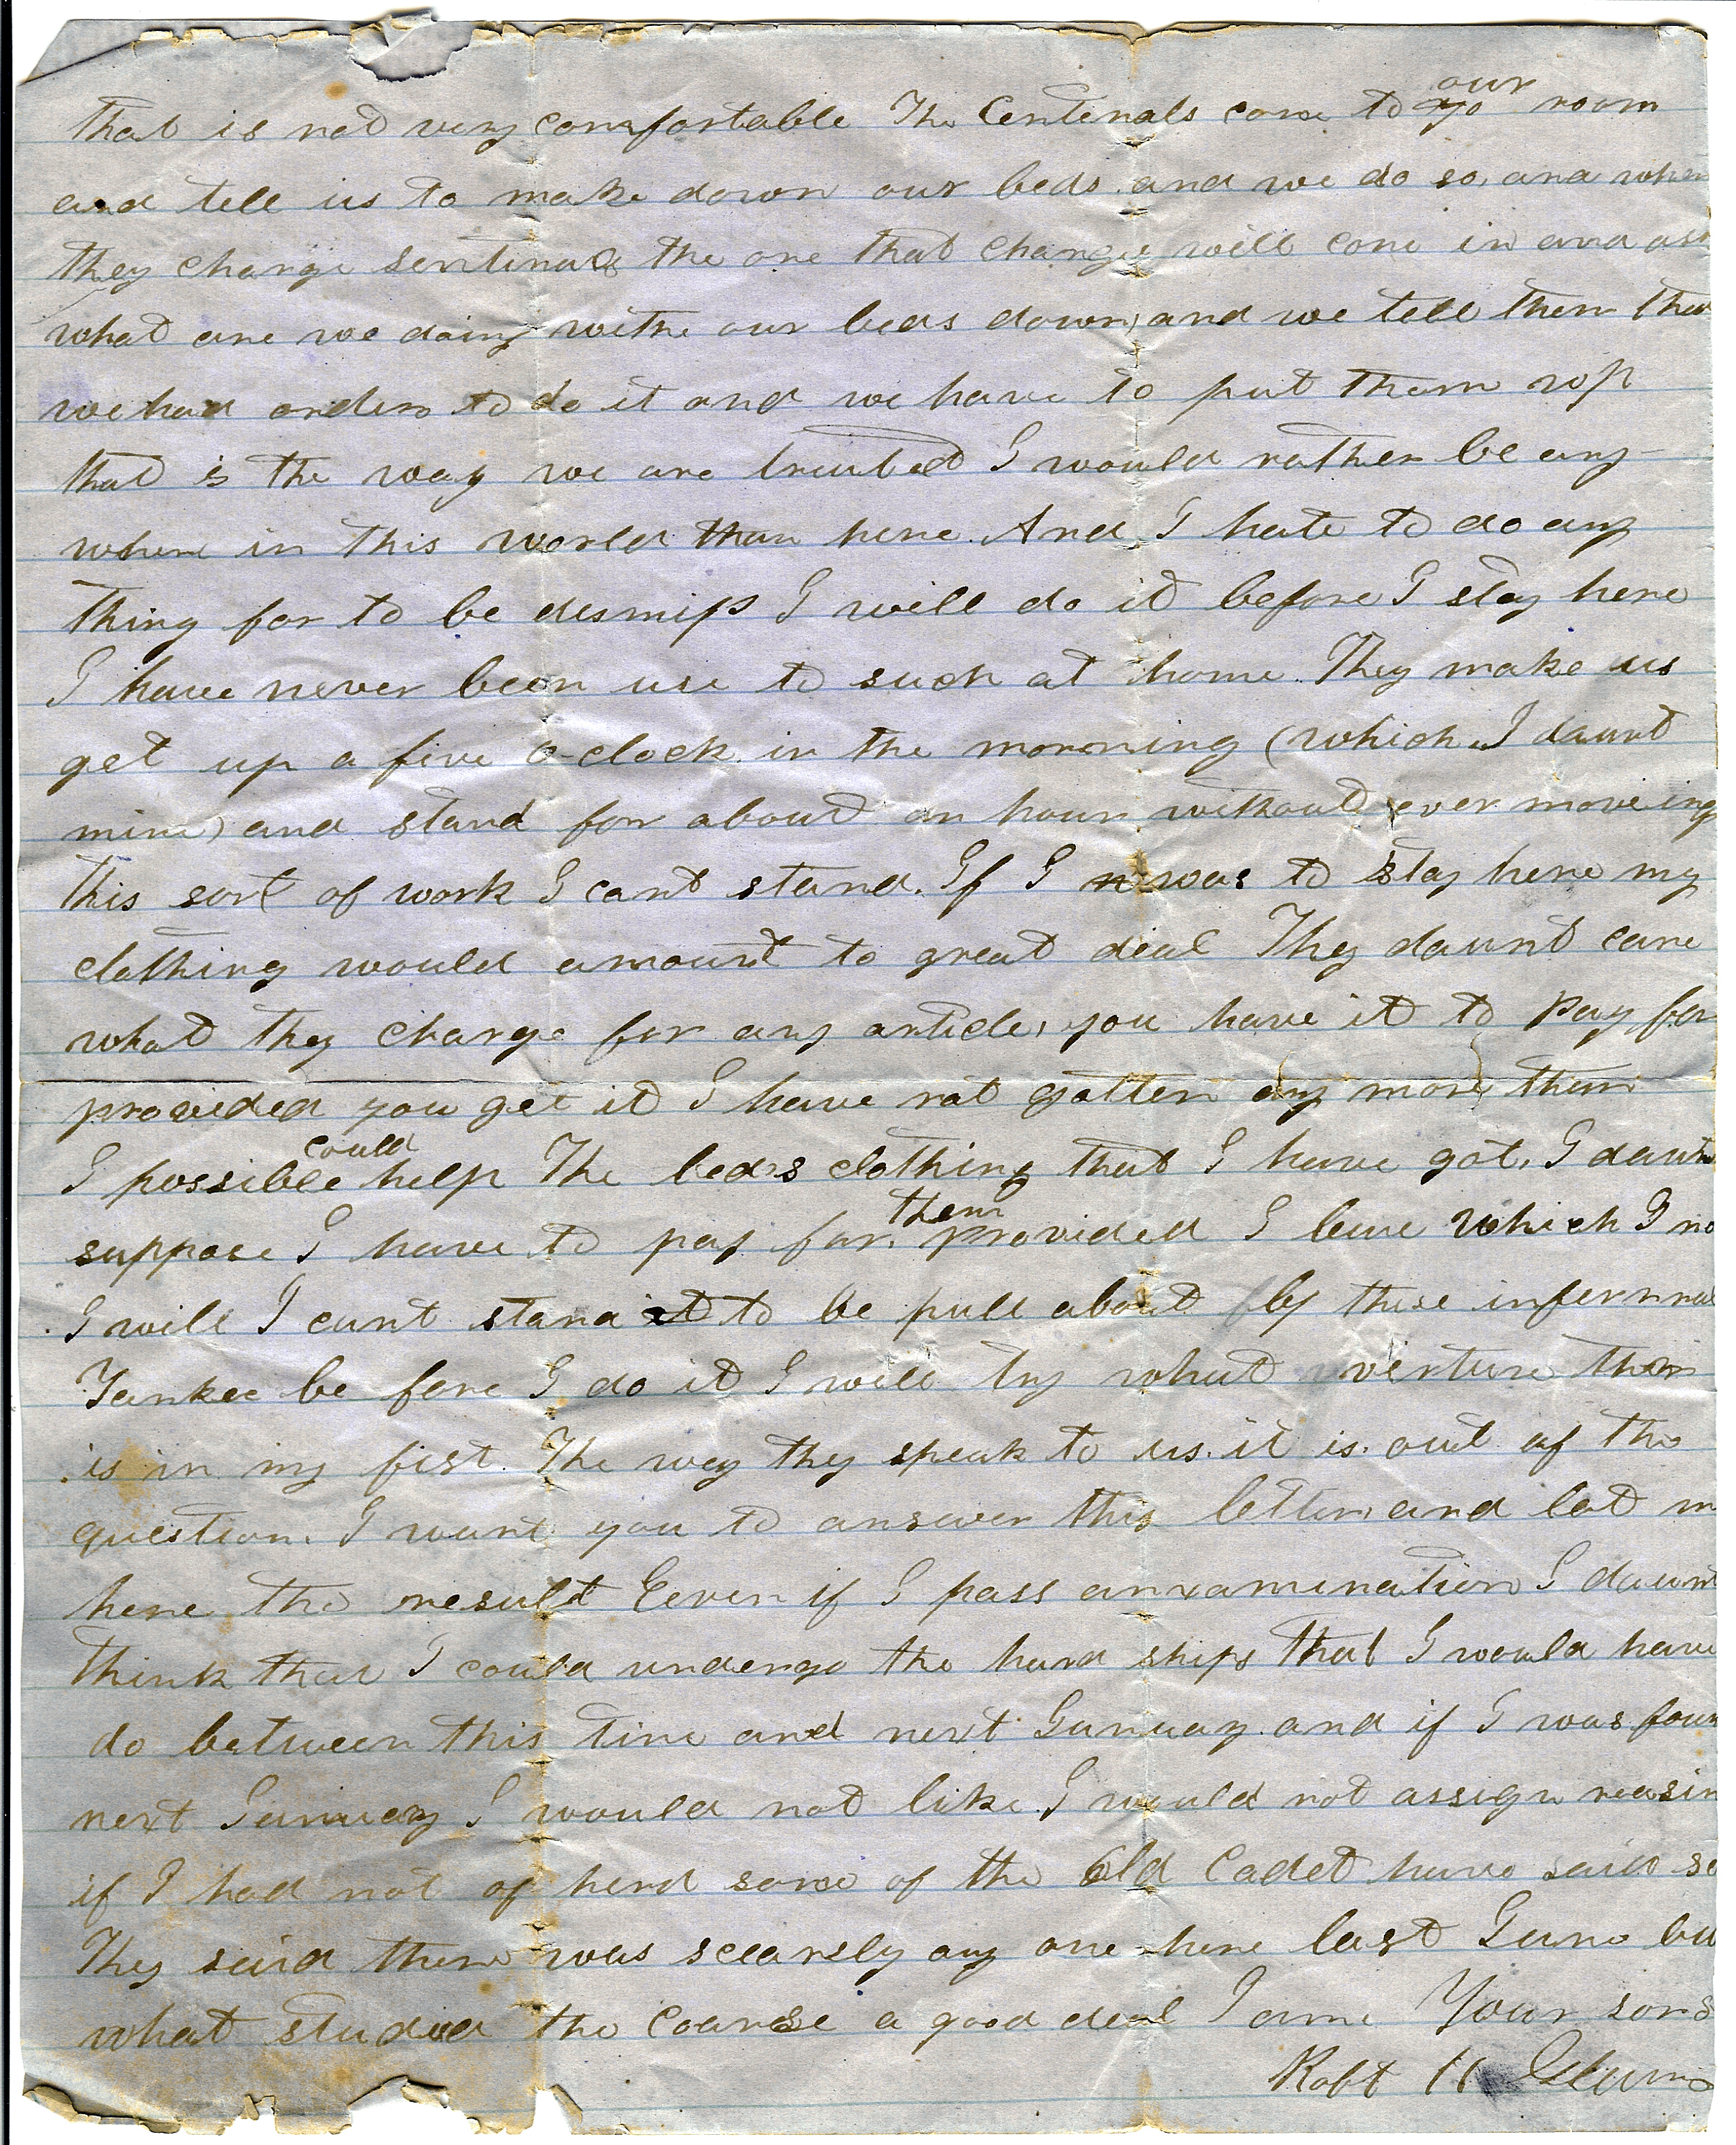 that is not very comfortable The Centenals come to our room
and tell us to make down our beds and we do so, and when
they change sentinals the one that change will come in and ask
what are we doing withe our beds down, and we tell them that
we had orders to do it and we have to put them up
that is the way we are treated I would rather be any-
where in this world than here. And I hate to do any
thing for to be desmiss I will do it before I stay here
I have never been use to such at home. They make us
get up a five o-clock in the morning (which I daunt
mine) and stand for about an hour without ever moveing
this sort of work I cant stand. If I was to stay here my
clothing would amount to great deal They daunt care
what they charge for any article, you have it to pay for
provided you get it I have not gotten any more then
I possible could help The beds clothing that I have got, I daunt
suppose I have to pay for, them provided I leave which I no
I will I cant stand it to be pull about by these infernnal
Yankee be fore I do it I will try what verture there
is in my fist. The way they speak to us. it is. out of the
question. I want you to answer this letter, and let m
here the result Eeven if I pass anxamination I daunt
think that I could undergo the hard ships that I would have
do between this time and next Ganuay. and if I was foun
next Ganuary I would not like. I would not assign reasin
if I had not of herd some of the Old Cadet have said so
They said there was scearsly any one here last Gune bu
what studied the Coarse a good deal I am Your sons
Robt H